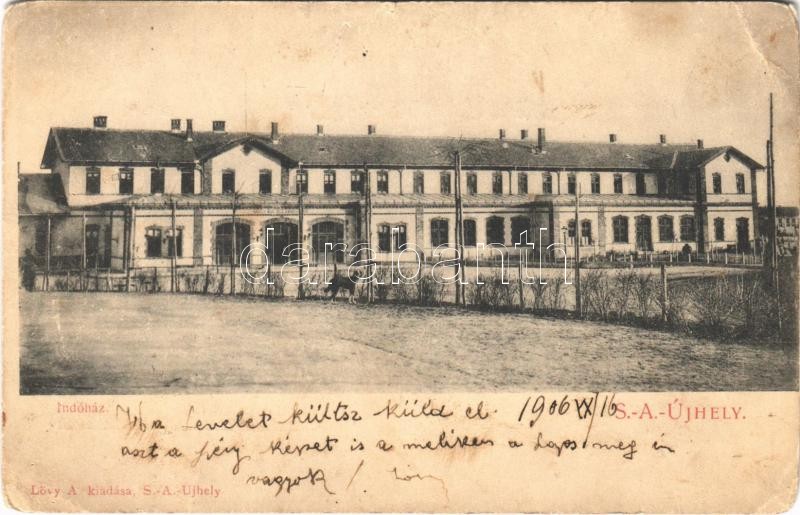 darabanth
Indóház.
S.-A.-ÚJHELY.
Ha Levelet kültsz küld el 1906 XI/16
aszt a fény képet is a meliken a Lajos meg én
vagyok /
Lövy A kiadása, S.-A.-Ujhely